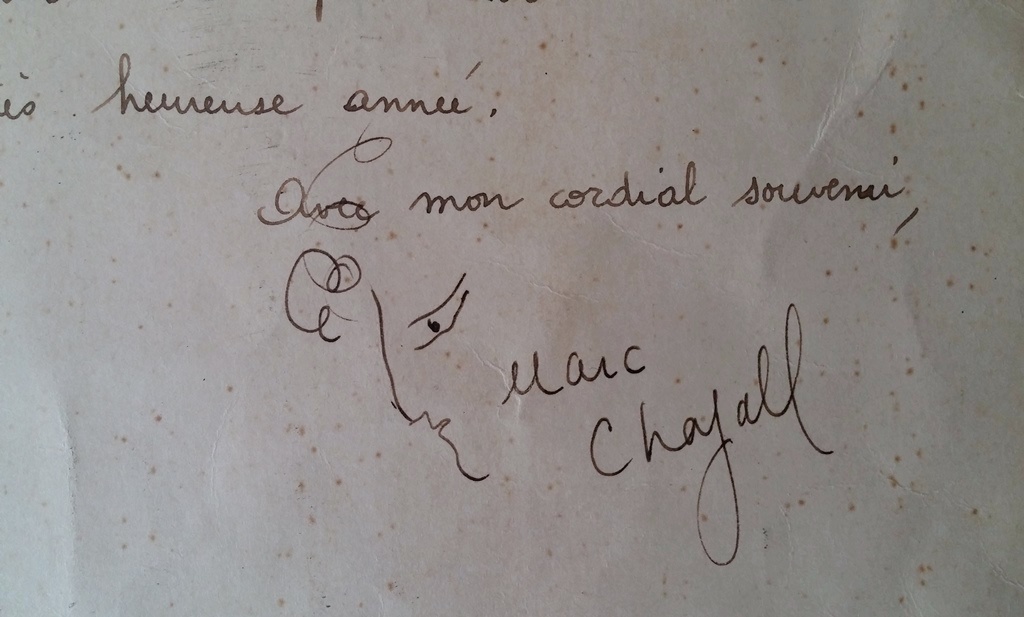 heureuse année.
Avec mon cordial souvenir,
Marc
Chagall